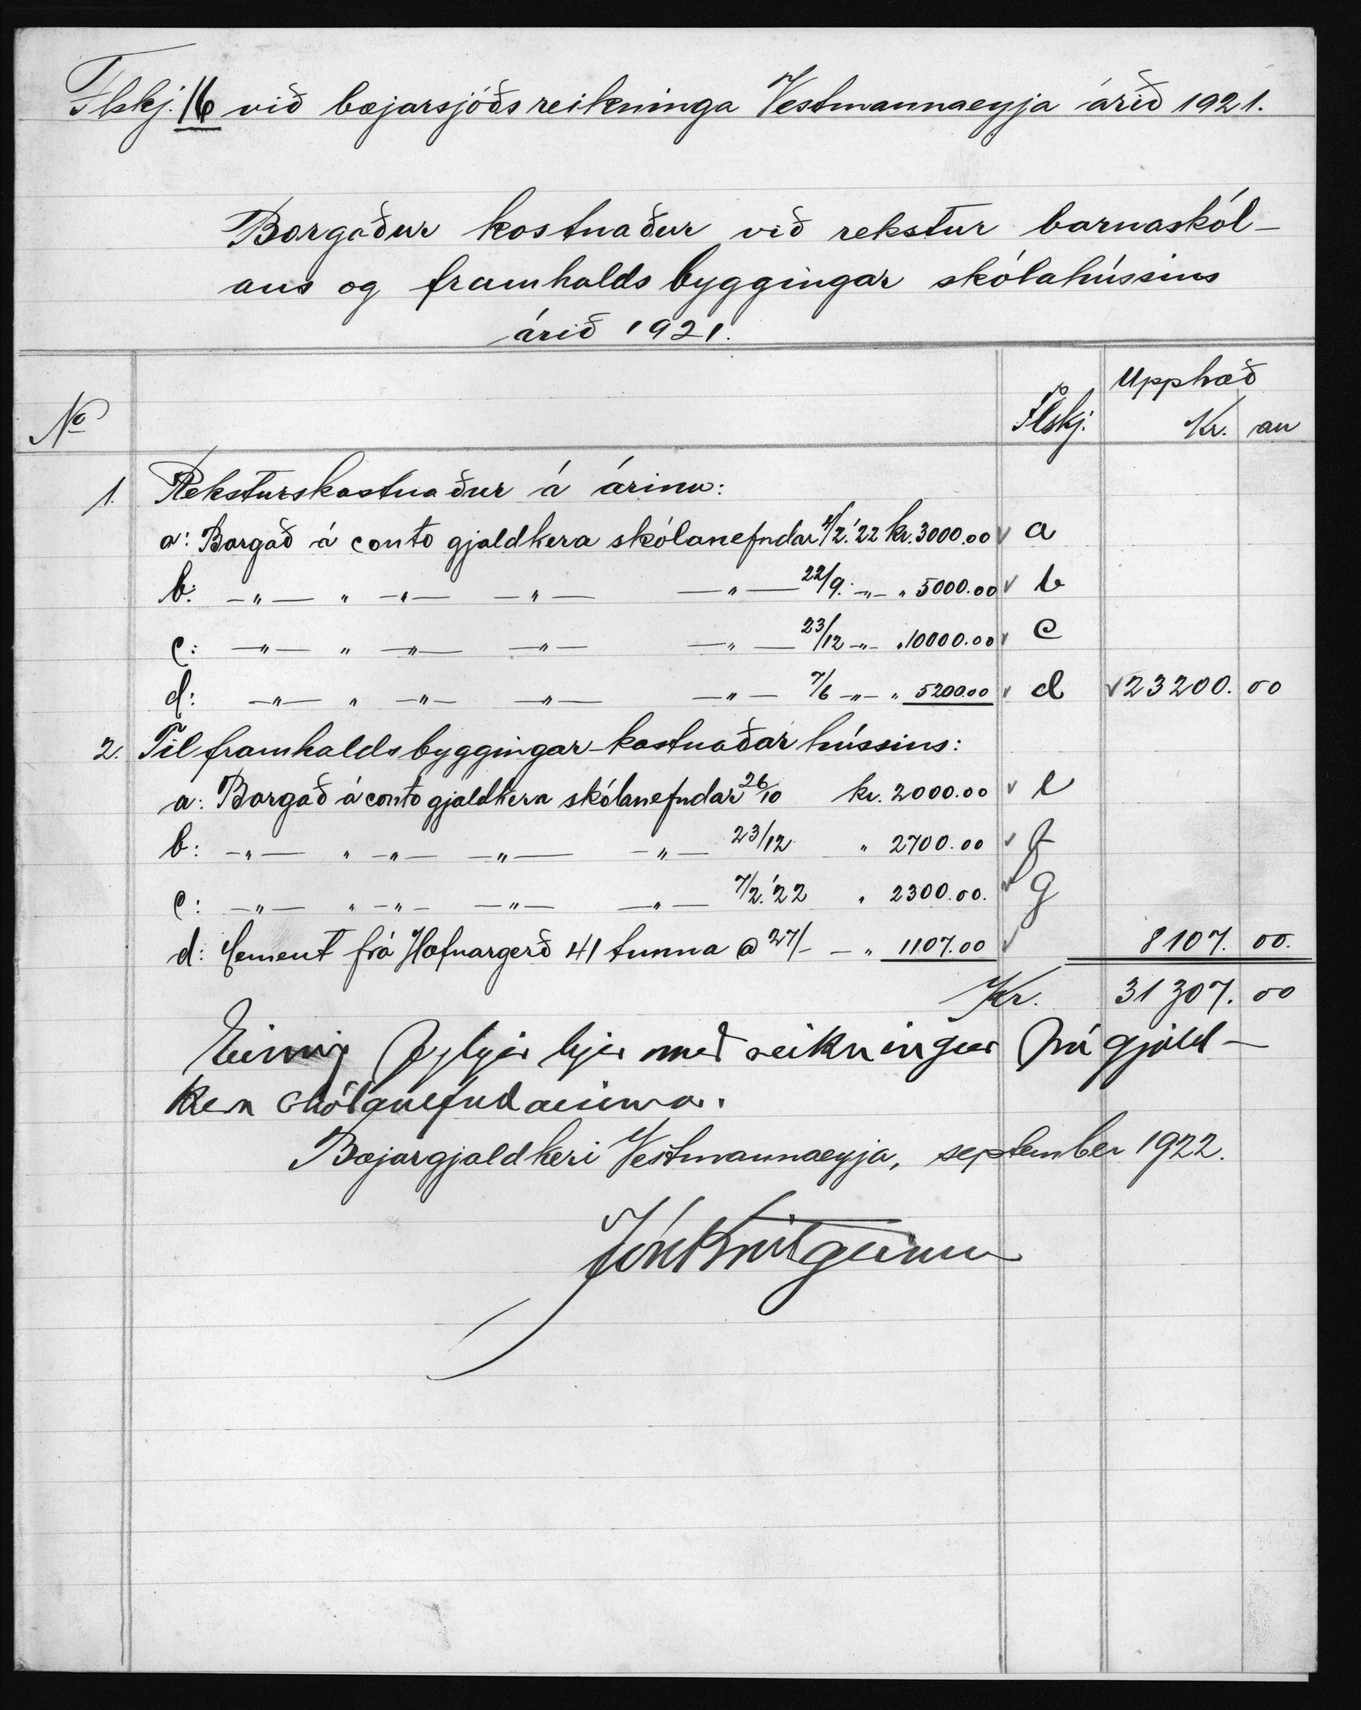 Flskj. 16 við bæjarsjóðsreikninga Vestmannaeyja árið 1921.
Borgaður kostnaður við rekstur barnaskól-
ans og framhaldsbyggingar skólahússins
árið 1921.
No Flskj. Upphæð
Kr. au
1. Reksturskostnaður á árinu:
a: Borgað á conto gjaldkera skólanefndar /2.'22 kr. 3000.00 ✓ a
b: —"— " —"— —"— —"— 22/9. —"— " 5000.00 ✓ b
c: —"— " —"— —"— —"— 23/12 —"— " 10000.00 ✓ c
d: —"— " —"— —"— —"— 7/6 —"— " 5200.00 ✓ d ✓ 23200. 00
2. Til framhaldsbyggingar-kostnaðar hússins:
a: Borgað á conto gjaldkera skólanefndar 26/10 kr. 2000.00 ✓ e
b: —"— " —"— —"— —"— 23/12 " 2700.00 ✓ f
c: —"— " —"— —"— —"— 7/2.'22 " 2300.00. ✓ g
d: Cement frá Hafnargerð 41 tunna @ 27/- — " 1107.00 ✓ 8107. 00.
Kr. 31307. 00
Einnig fylgir hjer með reikningur frá gjald-
kera skólanefndarinnar.
Bæjargjaldkeri Vestmannaeyja, september 1922.
Jón Kristgeirsson